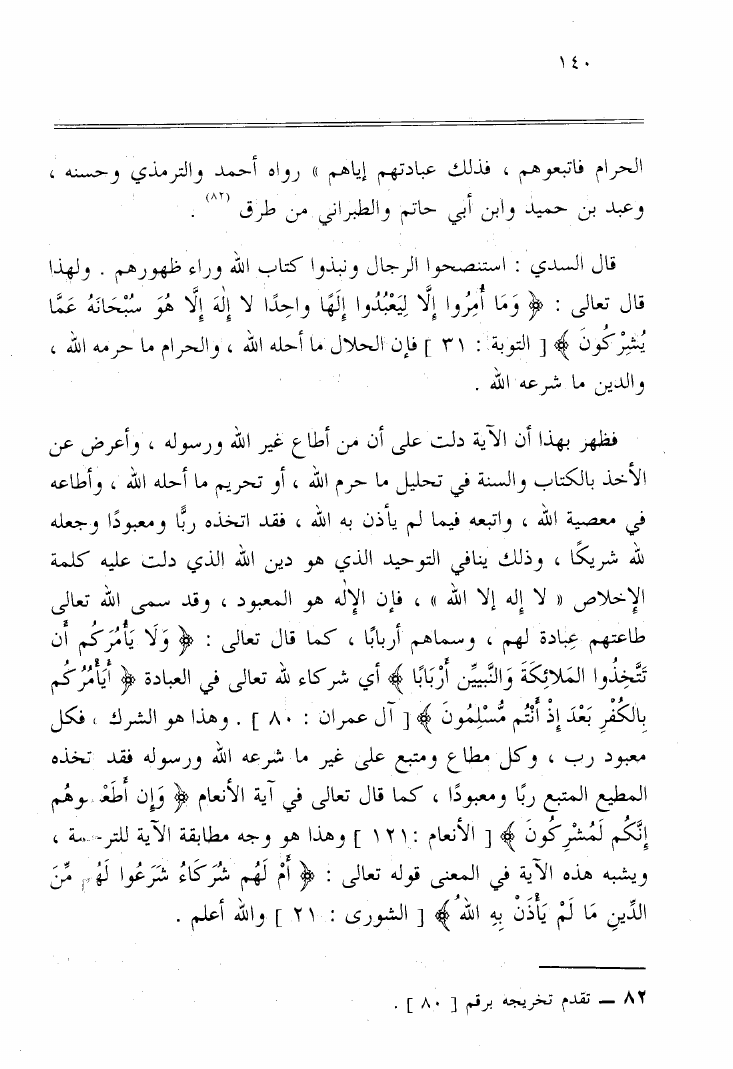 ١٤٠
الحرام فاتبعوهم ، فذلك عبادتهم إياهم » رواه أحمد والترمذي وحسنه ،
وعبد بن حميد وابن أبي حاتم والطبراني من طرق (٨٢) .
قال السدي : استنصحوا الرجال ونبذوا كتاب الله وراء ظهورهم . ولهذا
قال تعالى : ﴿ وَمَا أُمِرُوا إِلَّا لِيَعْبُدُوا إِلَهًا واحِدًا لا إِلهَ إِلَّا هُوَ سُبْحَانَهُ عَمَّا
يُشْرِكُونَ ﴾ [ التوبة : ٣١ ] فإن الحلال ما أحله الله ، والحرام ما حرمه الله ،
والدين ما شرعه الله .
فظهر بهذا أن الآية دلت على أن من أطاع غير الله ورسوله ، وأعرض عن
الأخذ بالكتاب والسنة في تحليل ما حرم الله ، أو تحريم ما أحله الله ، وأطاعه
في معصية الله ، واتبعه فيما لم يأذن به الله ، فقد اتخذه ربًّا ومعبودًا وجعله
لله شريكًا ، وذلك ينافي التوحيد الذي هو دين الله الذي دلت عليه كلمة
الإخلاص « لا إله إلا الله » ، فإن الإله هو المعبود ، وقد سمى الله تعالى
طاعتهم عبادة لهم ، وسماهم أربابًا ، كما قال تعالى : ﴿ وَلَا يَأْمُرَكُم أَن
تَتَّخِذُوا المَلائِكَةَ وَالنَّبِيِّن أَرْبَابًا ﴾ أي شركاء لله تعالى في العبادة ﴿ أَيَأْمُرُكُم
بِالكُفْرِ بَعْدَ إِذْ أَنْتُم مُّسْلِمُونَ ﴾ [ آل عمران : ٨٠ ] . وهذا هو الشرك ، فكل
معبود رب ، وكل مطاع ومتبع على غير ما شرعه الله ورسوله فقد تخذه
المطيع المتبع ربًا ومعبودًا ، كما قال تعالى في آية الأنعام ﴿ وَإِن أَطَعْـ ـوهُم
إِنَّكُم لَمُشْرِكُونَ ﴾ [ الأنعام : ١٢١ ] وهذا هو وجه مطابقة الآية للتر ـمة ،
ويشبه هذه الآية في المعنى قوله تعالى : ﴿ أَمْ لَهُم شُرَكَاءُ شَرَعُوا لَهُم مِّنَ
الدِّينِ مَا لَمْ يَأْذَنْ بِهِ اللهُ ﴾ [ الشورى : ٢١ ] والله أعلم .
٨٢ — تقدم تخريجه برقم [ ٨٠ ] .